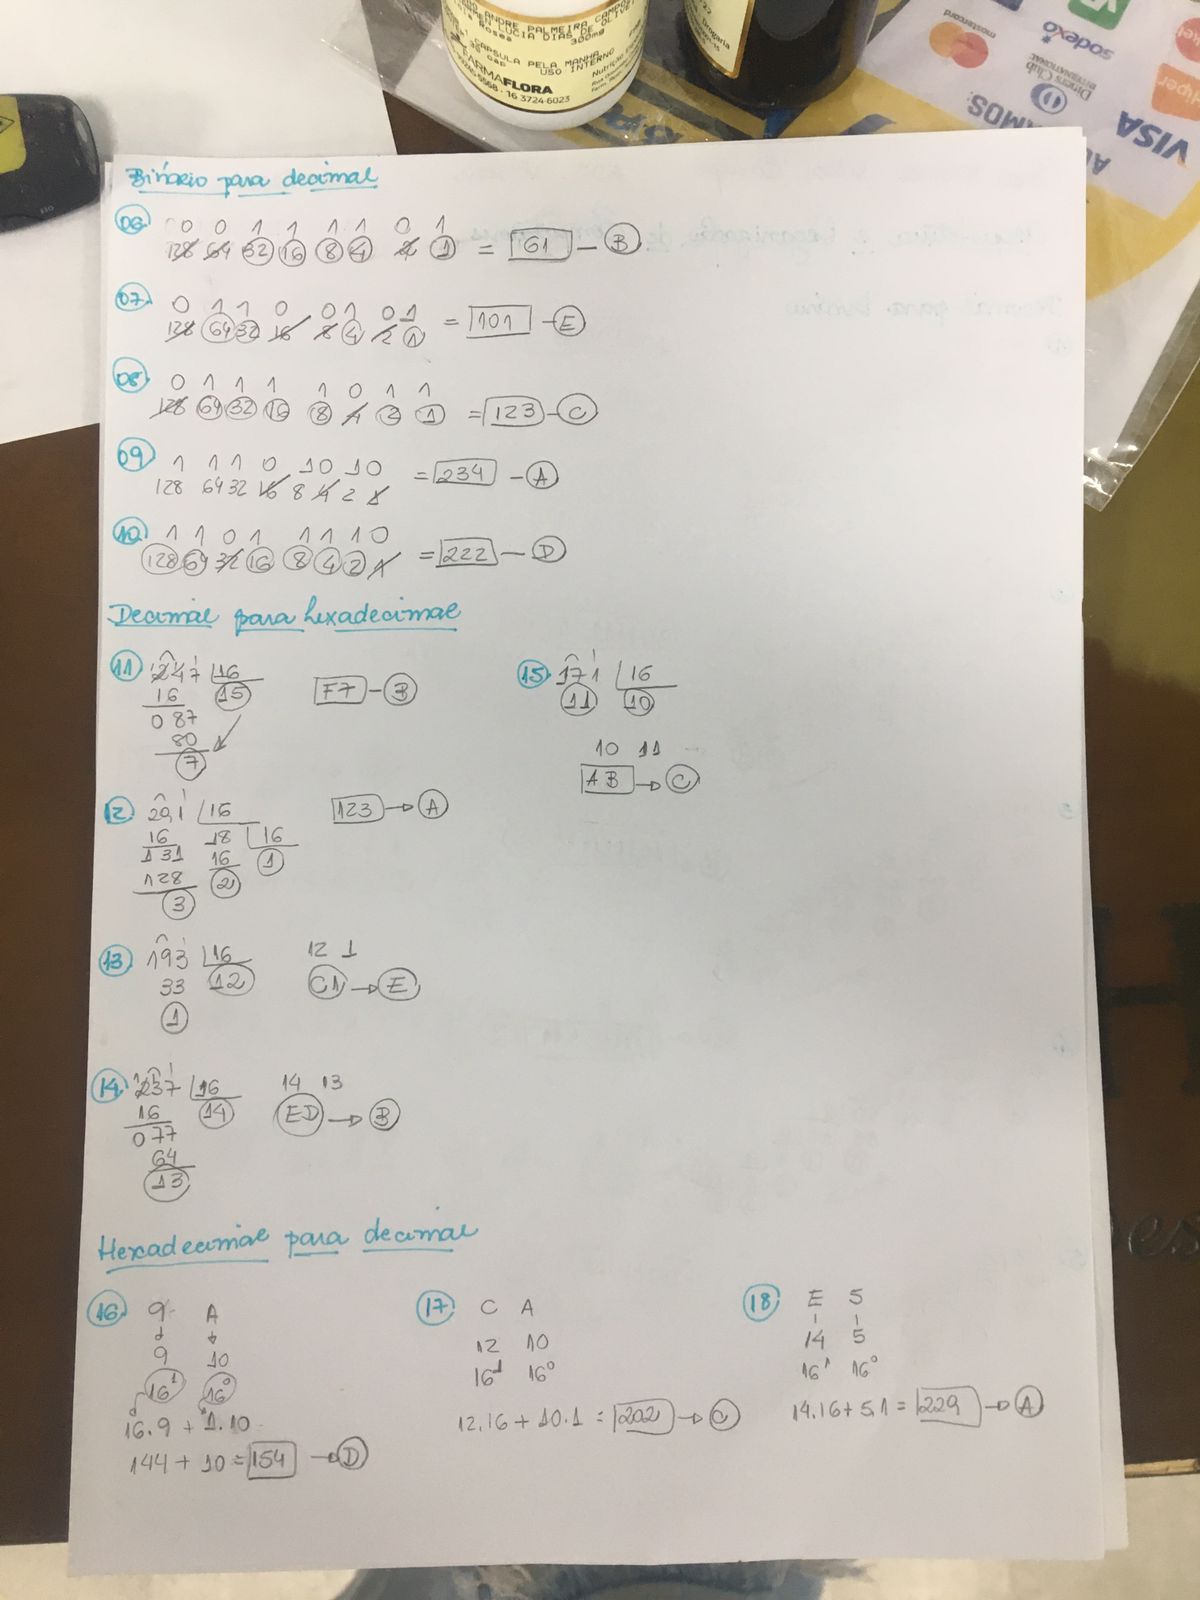 ANDRE PALMEIRA CAMPOS
LUCIA DIAS DE OLIVEI
Rosea 300mg
CAPSULA PELA MANHA
USO INTERNO
FARMAFLORA
16 3724-6023
Drogaria
mastercard
sodexo
Diners Club
INTERNATIONAL
VISA
Binário para decimal
06 0 0 1 1 1 1 0 1
128 64 32 16 8 4 2 1 = 61 — B
07 0 1 1 0 0 1 0 1
128 64 32 16 8 4 2 1 = 101 — E
08 0 1 1 1 1 0 1 1
128 64 32 16 8 4 2 1 = 123 — C
09 1 1 1 0 1 0 1 0
128 64 32 16 8 4 2 1 = 234 — A
10 1 1 0 1 1 1 1 0
128 64 32 16 8 4 2 1 = 222 — D
Decimal para hexadecimal
11 247 16
16 15 F7 — B
087
80
7
15 171 16
11 10
10 11
AB → C
12 291 16 123 → A
16 18 16
131 16 1
128 2
3
13 193 16 12 1
33 12 C1 → E
1
14 237 16 14 13
16 14 ED → B
077
64
13
Hexadecimal para decimal
16 9 A
9 10
16¹ 16⁰
16.9 + 1.10
144 + 10 = 154 → D
17 C A
12 10
16¹ 16⁰
12.16 + 10.1 = 202 → C
18 E 5
14 5
16¹ 16⁰
14.16 + 5.1 = 229 → A